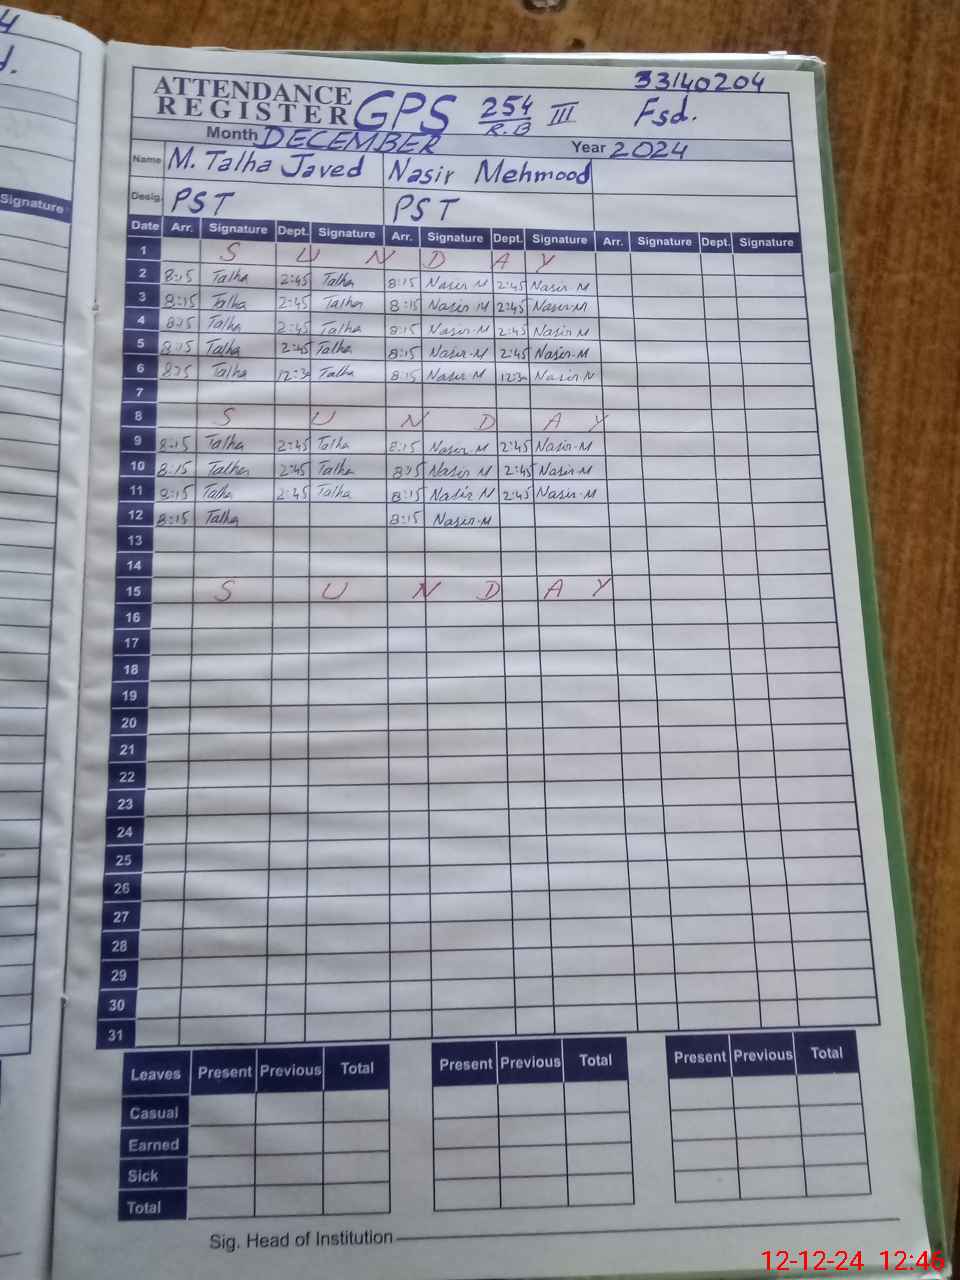 33140204
ATTENDANCE
REGISTER GPS 254 III Fsd.
R.B
Month DECEMBER Year 2024
Name M. Talha Javed Nasir Mehmood
Desig. PST PST
Signature
Date Arr. Signature Dept. Signature Arr. Signature Dept. Signature Arr. Signature Dept. Signature
1 S U N D A Y
2 8:15 Talha 2:45 Talha 8:15 Nasir M 2:45 Nasir M
3 8:15 Talha 2:45 Talha 8:15 Nasir M 2:45 Nasir M
4 8:15 Talha 2:45 Talha 8:15 Nasir-M 2:45 Nasir M
5 8:15 Talha 2:45 Talha 8:15 Nasir-M 2:45 Nasir-M
6 8:15 Talha 12:30 Talha 8:15 Nasir-M 12:30 Nasir M
7
8 S U N D A Y
9 8:15 Talha 2:45 Talha 8:15 Nasir-M 2:45 Nasir-M
10 8:15 Talha 2:45 Talha 8:15 Nasir M 2:45 Nasir-M
11 8:15 Talha 2:45 Talha 8:15 Nasir M 2:45 Nasir-M
12 8:15 Talha 8:15 Nasir-M
13
14
15 S U N D A Y
16
17
18
19
20
21
22
23
24
25
26
27
28
29
30
31
Leaves Present Previous Total Present Previous Total Present Previous Total
Casual
Earned
Sick
Total
Sig. Head of Institution
12-12-24 12:46